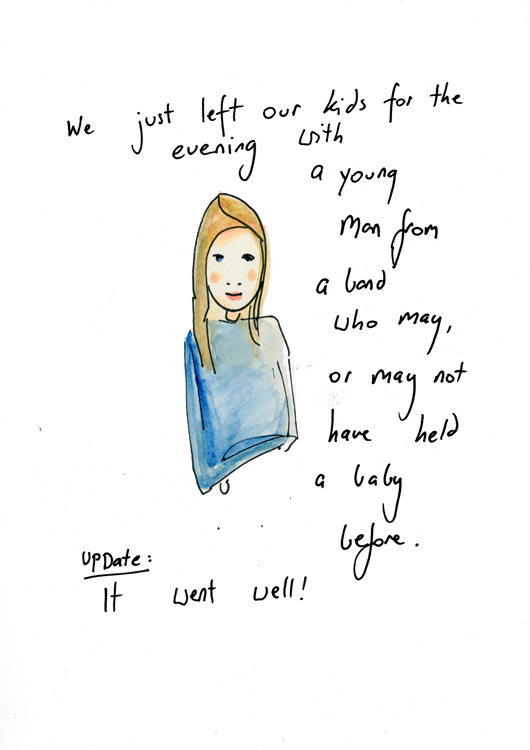 We just left our kids for the
evening with
a young
man from
a band
who may,
or may not
have held
a baby
before.
UPDate:
It went well!